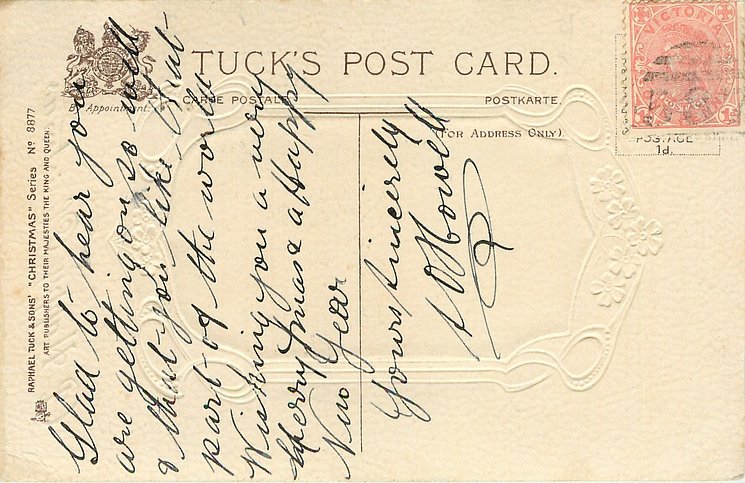 TUCK'S POST CARD.
By Appointment.
CARTE POSTALE
POSTKARTE.
(FOR ADDRESS ONLY)
VICTORIA
POSTAGE
1d.
RAPHAEL TUCK & SONS' "CHRISTMAS" Series Nº 8877
ART PUBLISHERS TO THEIR MAJESTIES THE KING AND QUEEN.
Glad to hear you
are getting on so well
& that you like that
part of the world
Wishing you a very
Merry Xmas & a Happy
New Year
Yours Sincerely
Howell